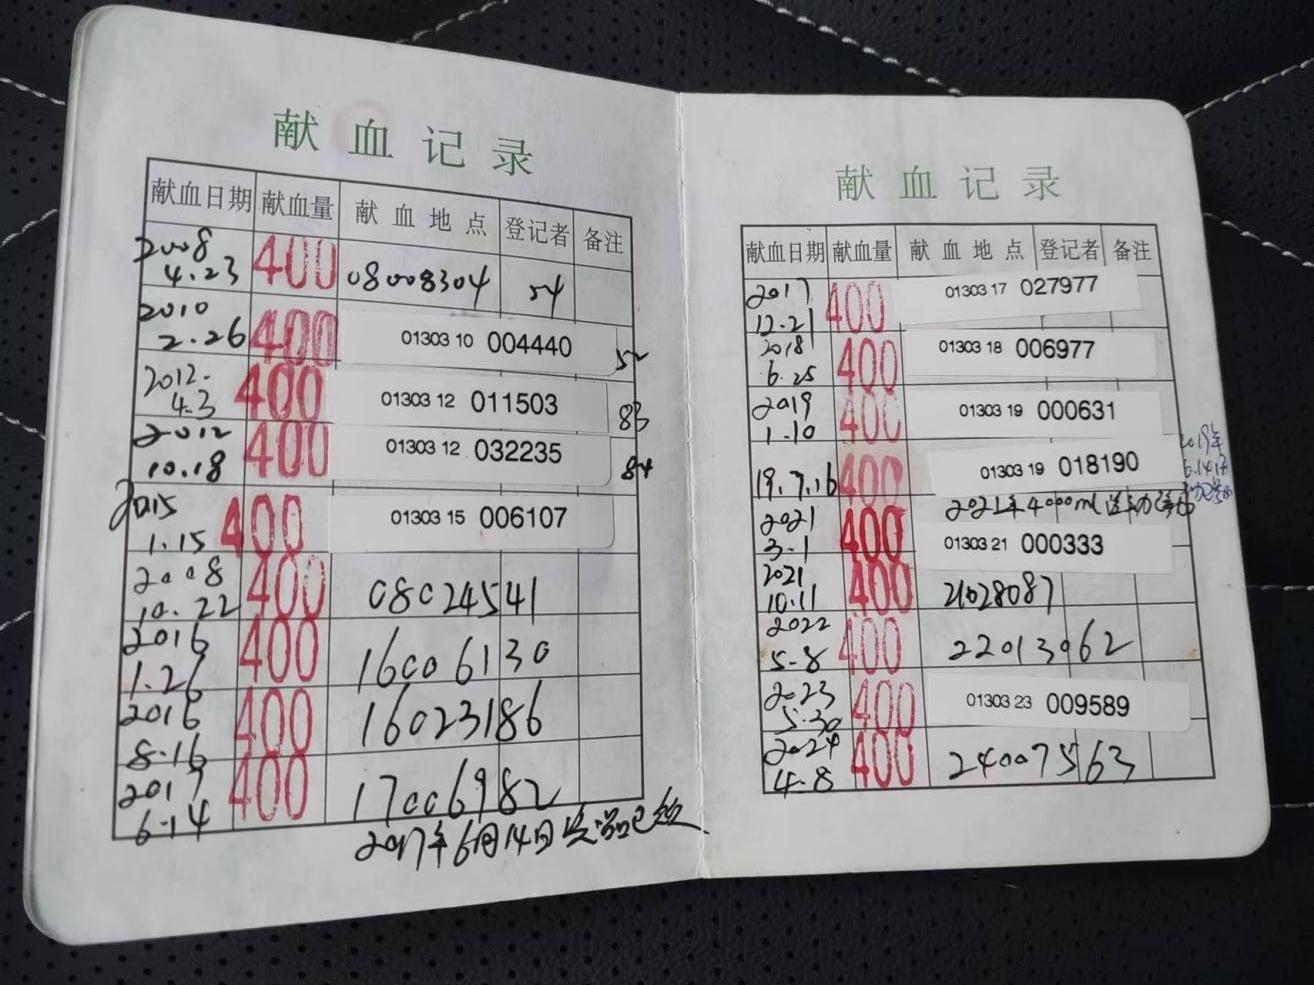 献血记录
献血日期 献血量 献血地点 登记者 备注
2008 4.23 400 08008304 54
2010 2.26 400 01303 10 004440 52
2012. 4.3 400 01303 12 011503 83
2012 10.18 400 01303 12 032235 84
2015 1.15 400 01303 15 006107
2008 10.22 400 08024541
2016 1.26 400 16006130
2016 8.16 400 16023186
2017 6.14 400 17006982
2017年6月14日奖品已领
献血记录
献血日期 献血量 献血地点 登记者 备注
2017 12.21 400 01303 17 027977
2018 6.25 400 01303 18 006977
2019 1.10 400 01303 19 000631
19.7.16 400 01303 19 018190
2019年
6.14
2021年4000ml
2021 3.1 400 01303 21 000333
2021 10.11 400 21028087
2022 5-8 400 22013062
2023 5.30 400 01303 23 009589
2024 4-8 400 24007563